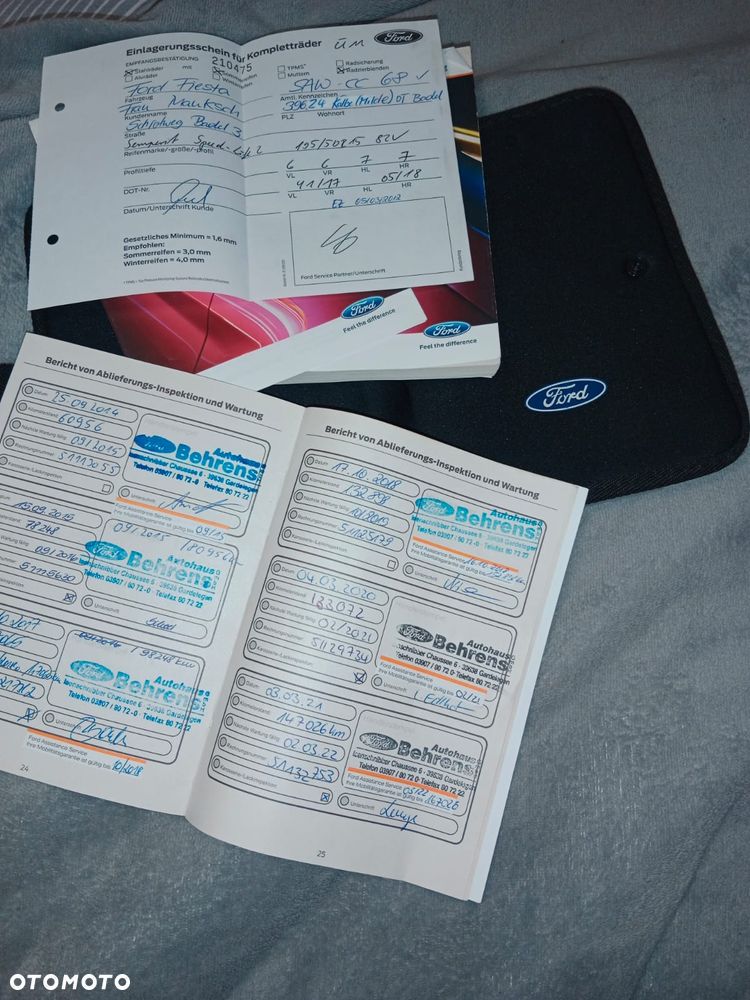 Einlagerungsschein für Kompletträder
ÜM
Ford
EMPFANGSBESTÄTIGUNG
210475
Stahlräder
mit
Alufräder
TPMS*
Muttern
Radsicherung
Radzierblenden
Ford Fiesta
SAW-CC 68
Fahrzeug
Amtl. Kennzeichen
39624 Kalbe (Milde) OT Badel
Kundenname
PLZ
Wohnort
Straße
Semperit Speed-Life 2
195/50R15 82V
Reifenmarke/-größe/-profil
6 6 7 7
Profiltiefe
VL VR HL HR
41/17
05/18
DOT-Nr.
EZ 05/03/2012
Datum/Unterschrift Kunde
Gesetzliches Minimum = 1,6 mm
Empfohlen:
Sommerreifen = 3,0 mm
Winterreifen = 4,0 mm
Ford Service Partner/Unterschrift
Ford
Feel the difference
Ford
Feel the difference
Ford
Bericht von Ablieferungs-Inspektion und Wartung
Datum 25.09.2014
Kilometerstand 60956
Nächste Wartung fällig 09/2015
Rechnungsnummer 51113055
Karosserie-/Lackinspektion
Autohaus
Ford Behrens
Telefon 03907 / 80 72-0 · Telefax 80 72 22
Unterschrift
Ford Assistance Service
Ihre Mobilitätsgarantie ist gültig bis 09/15
15.09.2015
78248
09/2016
Autohaus
Ford Behrens
Isenschnibber Chaussee 6 · 39638 Gardelegen
Telefon 03907 / 80 72-0 · Telefax 80 72 22
Unterschrift
/ 98248 km
Autohaus
Ford Behrens
Isenschnibber Chaussee 6 · 39638 Gardelegen
Telefon 03907 / 80 72-0 · Telefax 80 72 22
Unterschrift
Ford Assistance Service
Ihre Mobilitätsgarantie ist gültig bis 10/2018
24
Bericht von Ablieferungs-Inspektion und Wartung
Datum 17.10.2018
Kilometerstand
Nächste Wartung fällig 10/2019
Rechnungsnummer 51125179
Karosserie-/Lackinspektion
Autohaus
Ford Behrens
Isenschnibber Chaussee 6 · 39638 Gardelegen
Telefon 03907 / 80 72-0 · Telefax 80 72 22
Ford Assistance Service
Ihre Mobilitätsgarantie ist gültig bis
Unterschrift
Datum 04.03.2020
Kilometerstand 133072
Nächste Wartung fällig 02/2021
Rechnungsnummer 51129734
Karosserie-/Lackinspektion
Autohaus
Ford Behrens
Isenschnibber Chaussee 6 · 39638 Gardelegen
Telefon 03907 / 80 72-0 · Telefax 80 72 22
Ford Assistance Service
Ihre Mobilitätsgarantie ist gültig bis
Unterschrift
Datum 03.03.21
Kilometerstand 147026 km
Nächste Wartung fällig 02.03.22
Rechnungsnummer 51132753
Karosserie-/Lackinspektion
Autohaus
Ford Behrens
Isenschnibber Chaussee 6 · 39638 Gardelegen
Telefon 03907 / 80 72-0 · Telefax 80 72 22
Ford Assistance Service
Ihre Mobilitätsgarantie ist gültig bis
Unterschrift
25
OTOMOTO